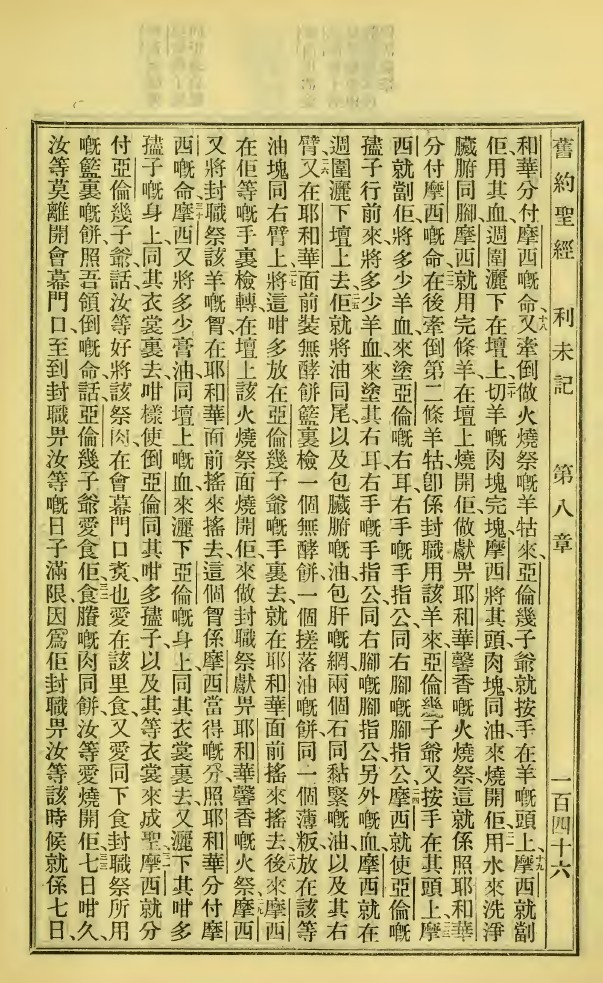 舊約聖經 利未記 第八章 一百四十六
和華分付摩西嘅命、十八又牽倒做火燒祭嘅羊牯來、亞倫幾子爺就按手在羊嘅頭上、十九摩西就劏
佢、用其血週圍灑下在壇上、二十切羊嘅肉塊完塊、摩西將其頭肉塊同油來燒開佢、二一用水來洗淨
臟腑同腳、摩西就用完條羊在壇上燒開佢、做獻畀耶和華馨香嘅火燒祭、這就係照耶和華
分付摩西嘅命、二二在後牽倒第二條羊牯、卽係封職用該羊來、亞倫幾子爺又按手在其頭上、二三摩
西就劏佢、將多少羊血來塗亞倫嘅右耳右手嘅手指公、同右腳嘅腳指公、二四摩西就使亞倫嘅
孻子行前來、將多少羊血來塗其右耳右手嘅手指公、同右腳嘅腳指公、另外嘅血、摩西就在
週圍灑下壇上去、二五佢就將油同尾以及包臟腑嘅油、包肝嘅網、兩個石、同黏緊嘅油、以及其右
臂、二六又在耶和華面前裝無酵餅籃裏、檢一個無酵餅、一個搓落油嘅餅、同一個薄粄、放在該等
油塊同右臂上、二七將這咁多放在亞倫幾子爺嘅手裏去、就在耶和華面前搖來搖去、二八後來摩西
在佢等嘅手裏檢轉、在壇上該火燒祭面燒開佢、來做封職祭、獻畀耶和華馨香嘅火祭、二九摩西
又將封職祭該羊嘅胷、在耶和華面前搖來搖去、這個胷係摩西當得嘅分、照耶和華分付摩
西嘅命、三十摩西又將多少膏油同壇上嘅血、來灑下亞倫嘅身上、同其衣裳裏去、又灑下其咁多
孻子嘅身上、同其衣裳裏去、咁樣使倒亞倫同其咁多孻子、以及其等衣裳來成聖、三一摩西就分
付亞倫幾子爺話、汝等好將該祭肉在會幕門口煑、也愛在該里食、又愛同下食封職祭所用
嘅籃裏嘅餅、照吾領倒嘅命話、亞倫幾子爺愛食佢、三二食賸嘅肉同餅、汝等愛燒開佢、三三七日咁久、
汝等莫離開會幕門口、至到封職畀汝等嘅日子滿限、因爲佢封職畀汝等該時候就係七日、